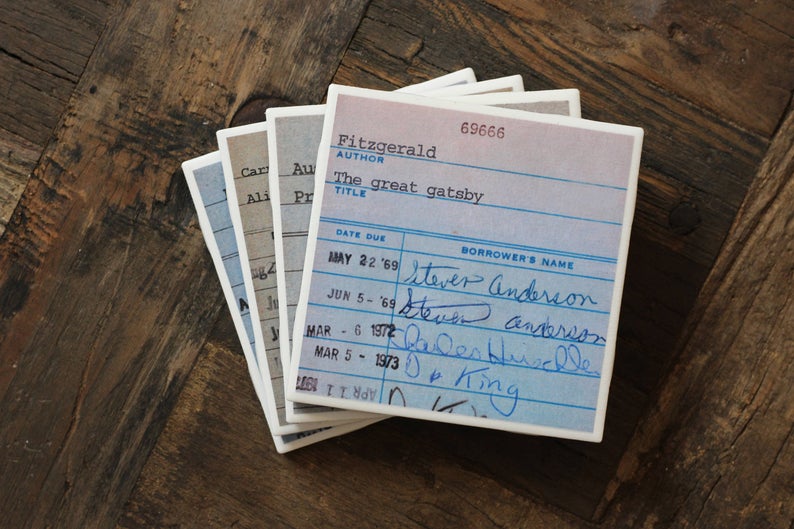 69666
Fitzgerald
AUTHOR
The great gatsby
TITLE
DATE DUE BORROWER'S NAME
MAY 22 '69 Steven Anderson
JUN 5 - '69 Steven Anderson
MAR - 6 1972 Charles
MAR 5 - 1973 D King
APR 11 1973 D King
Carr
Ali
Au
Pr